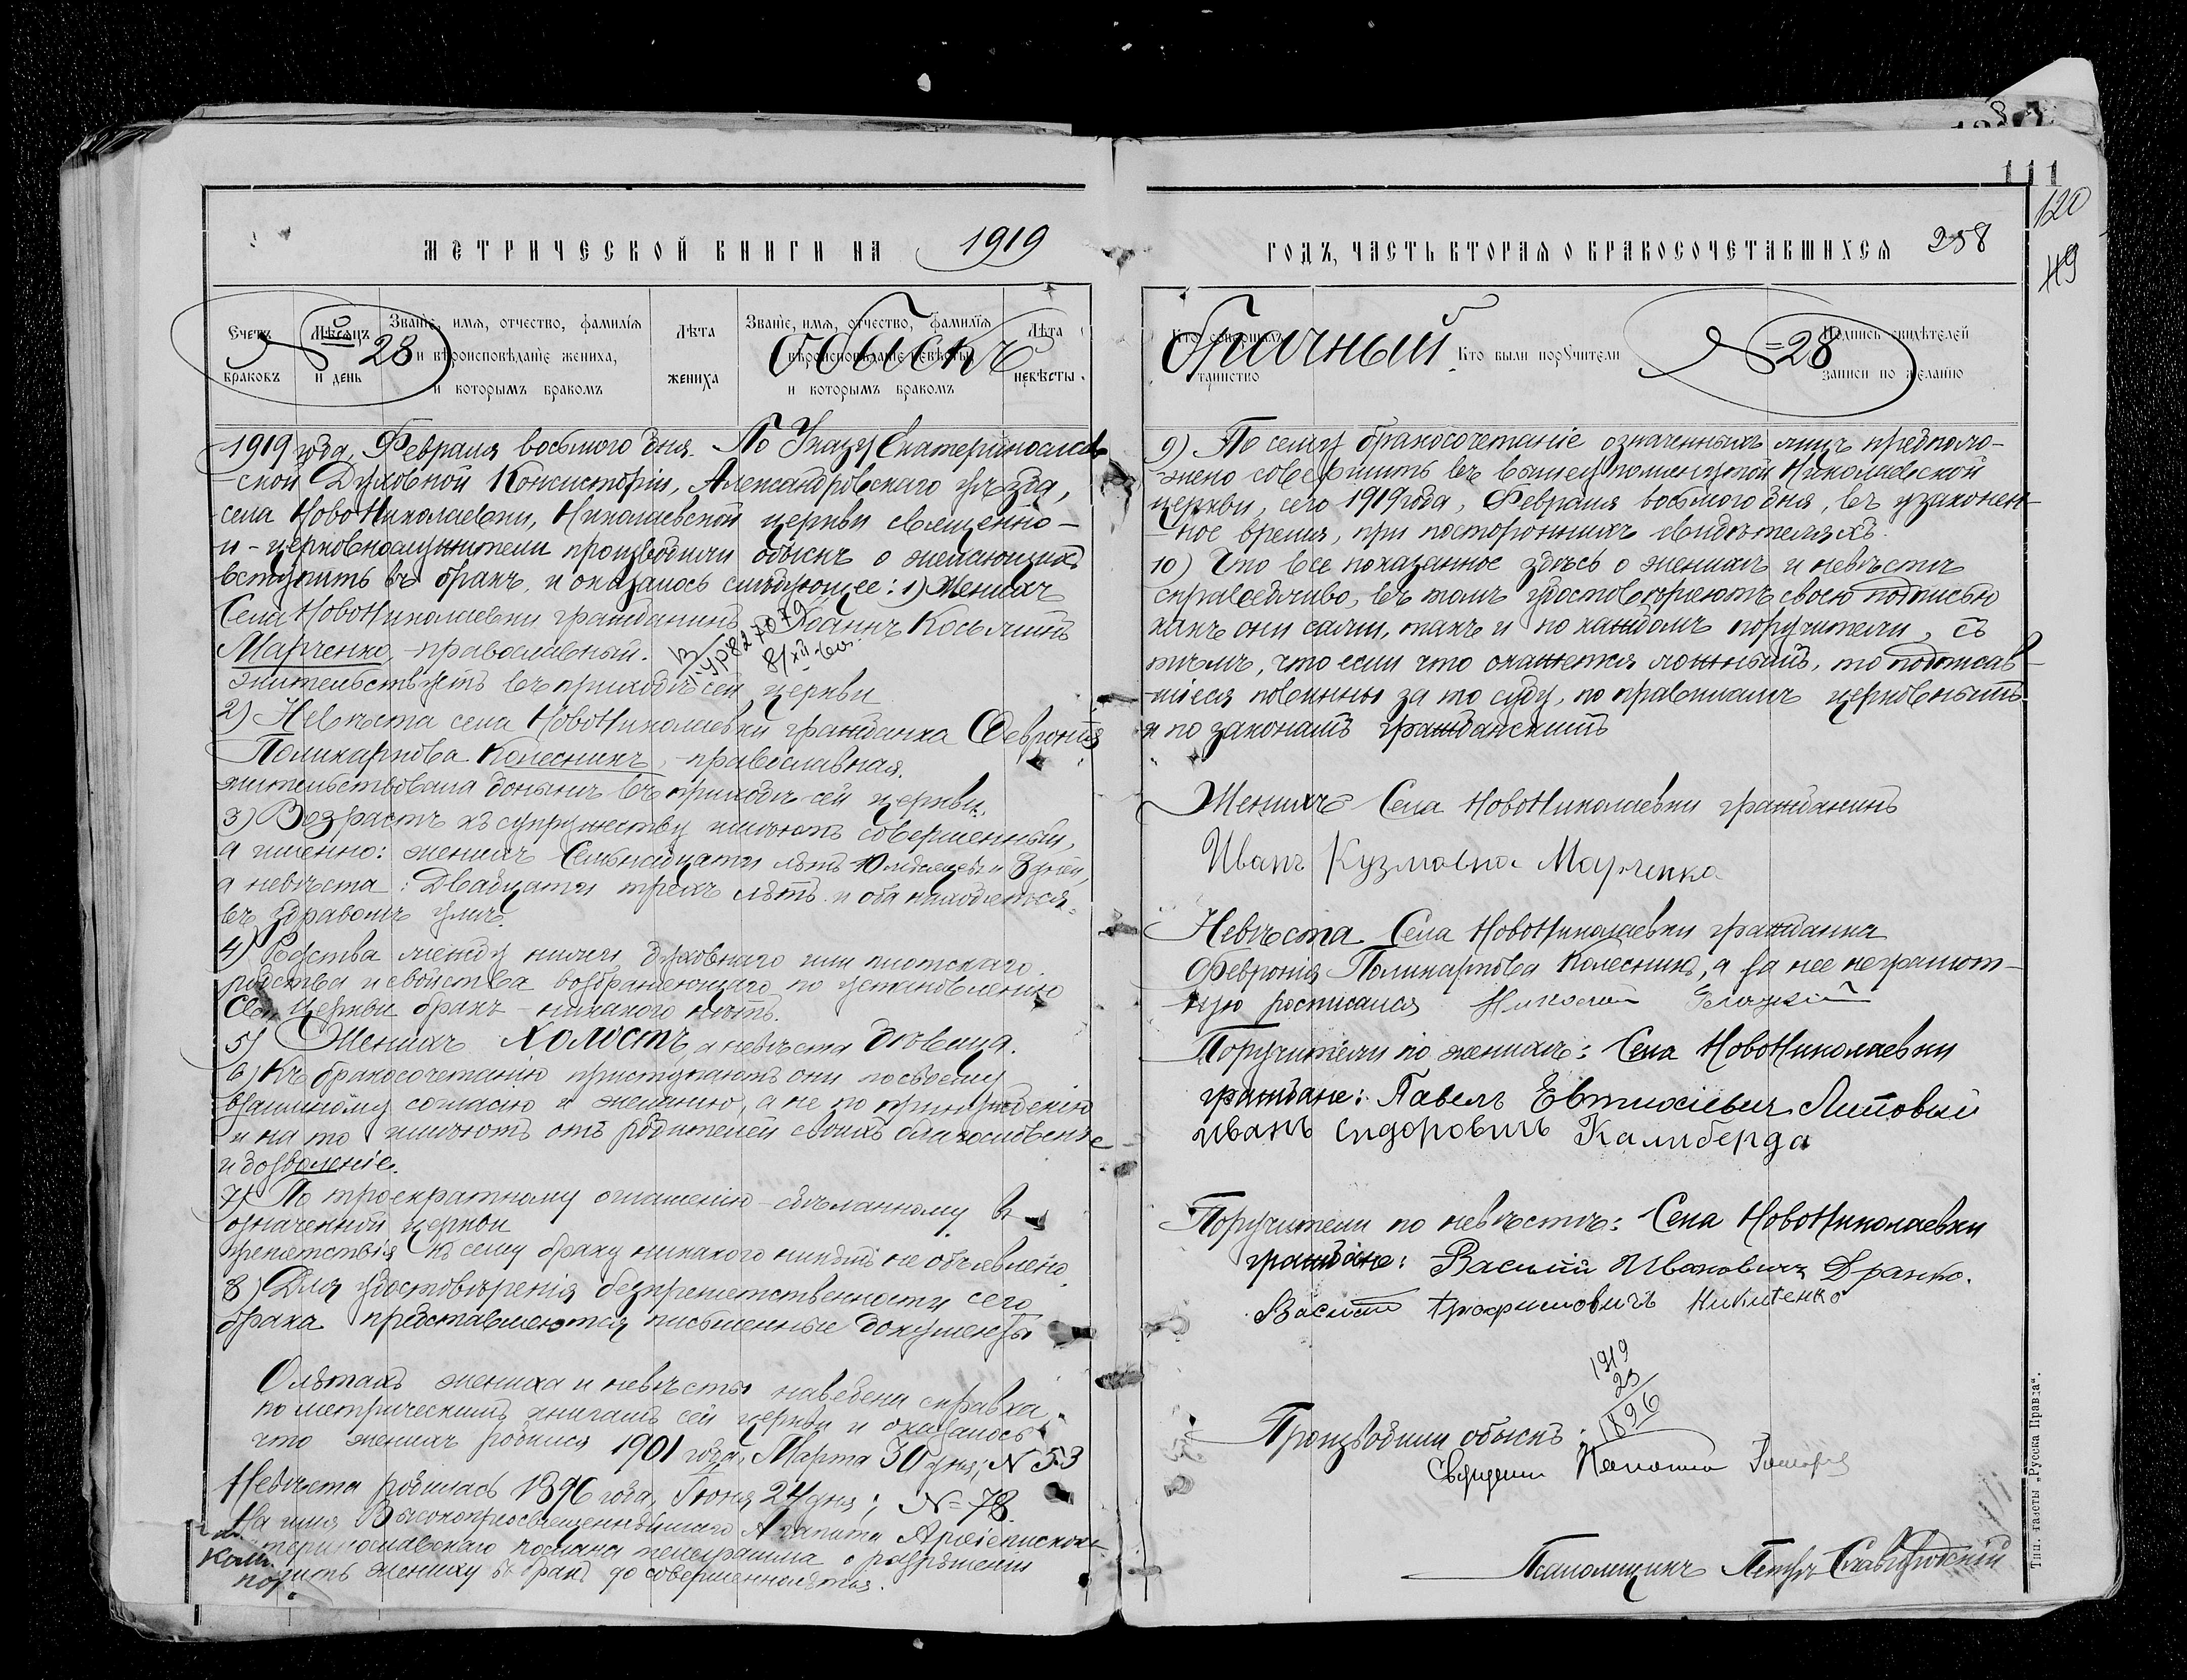 111
120
119
МЕТРИЧЕСКОЙ КНИГИ НА 1919
ГОДЪ, ЧАСТЬ ВТОРАЯ О БРАКОСОЧЕТАВШИХСЯ 258
Счетъ браковъ
Мѣсяцъ и день
Званіе, имя, отчество, фамилія и вѣроисповѣданіе жениха, и которымъ бракомъ
Лѣта жениха
Званіе, имя, отчество, фамилія и вѣроисповѣданіе невѣсты, и которымъ бракомъ
Лѣта невѣсты.
№ 28 Обыскъ
Кто совершалъ таинство
Кто были поручители
Подпись свидѣтелей записи по желанію
брачный. №=28
1919 года, Февраля восьмого дня. По Указу Екатеринослав-
ской Духовной Консисторіи, Александровскаго уѣзда,
села НовоНиколаевки, Николаевской церкви священно-
и-церковнослужители производили обыскъ о желающихъ
вступить въ бракъ, и оказалось слѣдующее: 1) Женихъ
Села НовоНиколаевки гражданинъ Іоаннъ Косьминъ
Марченко, православный.
8/XII
жительствуетъ въ приходѣ сей церкви
2) Невѣста села НовоНиколаевки гражданка Февронія
Поликарпова Колесникъ, православная.
жительствовала донынѣ въ приходѣ сей церкви.
3) Возрастъ къ супружеству имѣютъ совершенный,
а именно: женихъ Семьнадцати лѣтъ 10 мѣсяцевъ и 8 дней,
а невѣста: Двадцати трехъ лѣтъ и оба находятся
въ здравомъ умѣ.
4) Родства между ними духовнаго или плотскаго
родства и свойства возбраняющаго по установленію
Св. Церкви бракъ - никакого нѣтъ.
5) Женихъ холостъ, а невѣста дѣвица.
6) Къ бракосочетанію приступаютъ они по своему
взаимному согласію и желанію, а не по принужденію
и на то имѣютъ отъ родителей своихъ благословеніе
и дозволеніе.
7) По троекратному оглашенію - сдѣланному въ
означенной церкви
препятствія къ сему браку никакого никѣмъ не объявлено
8) Для удостовѣренія безпрепятственности сего
брака представляются письменные документы
О лѣтахъ жениха и невѣсты наведена справка
по метрическимъ книгамъ сей церкви и оказалось
что женихъ родился 1901 года, Марта 30 дня, № 53
Невѣста родилась 1896 года, Іюня 24 дня; №=78.
На имя Высокопреосвященнѣйшаго Агапита Архіепископа
Екатеринославскаго послана телеграмма о разрѣшеніи
жениху въ бракъ до совершеннолѣтія.
9) По сему бракосочетаніе означенныхъ лицъ предполо-
жено совершить въ вышеупомянутой Николаевской
церкви, сего 1919 года, Февраля восьмого дня, въ узаконен-
ное время, при постороннихъ свидѣтеляхъ.
10) Что все показанное здѣсь о женихѣ и невѣстѣ
справедливо, въ томъ удостовѣряютъ своею подписью
какъ они сами, такъ и по каждомъ поручители, съ
тѣмъ, что если что окажется ложнымъ, то подписав-
шіеся повинны за то суду, по правиламъ церковнымъ
и по законамъ гражданскимъ
Женихъ Села НовоНиколаевки гражданинъ
Иванъ Кузмовна Марченко
Невѣста Села НовоНиколаевки гражданка
Февронія Поликарпова Колесникъ, а за нее неграмот-
ную росписался Николай
Поручители по женихѣ: Села НовоНиколаевки
граждане: Павелъ Евтихіевич Липовый
Иванъ Сидоровичъ Калиберда
Поручители по невѣстѣ: Села НовоНиколаевки
граждане: Василій Ивановичъ Дранко.
Василій Трофимовичъ Никитенко
1919
23
1896
Производили обыскъ:
Священн.
Псаломщикъ Петръ Славгородскій
Тип. газеты „Русска Правда“.